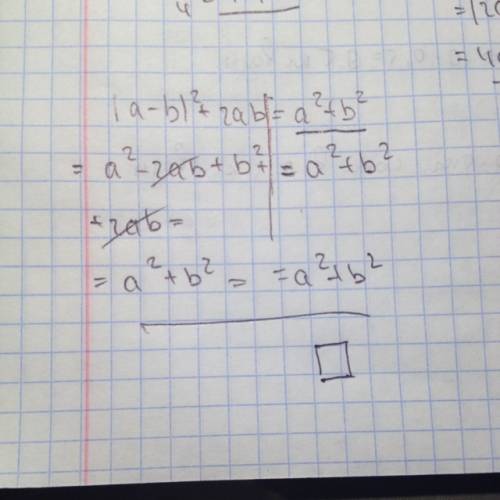 (a-b)²+2ab = a²+b²
= a²-2ab+b²+ = a²+b²
+2ab=
= a²+b² = =a²+b²